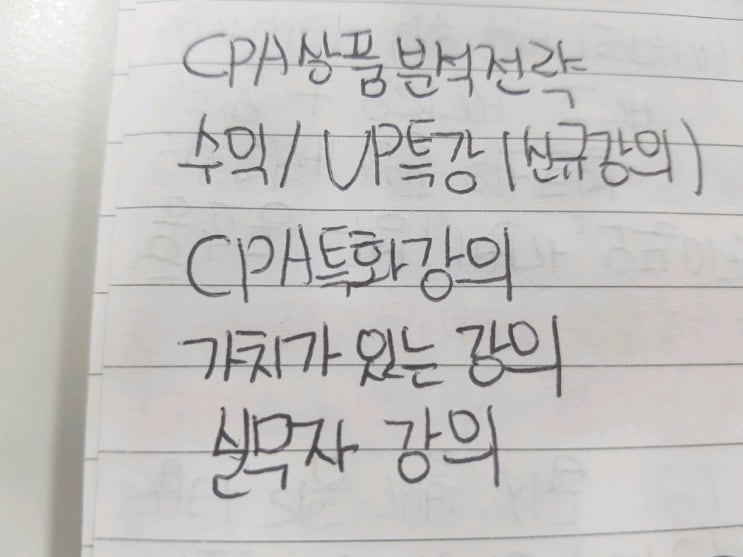 CPA상품분석전략
수익/UP특강(신규강의)
CPA특화강의
가치가 있는 강의
실무자 강의